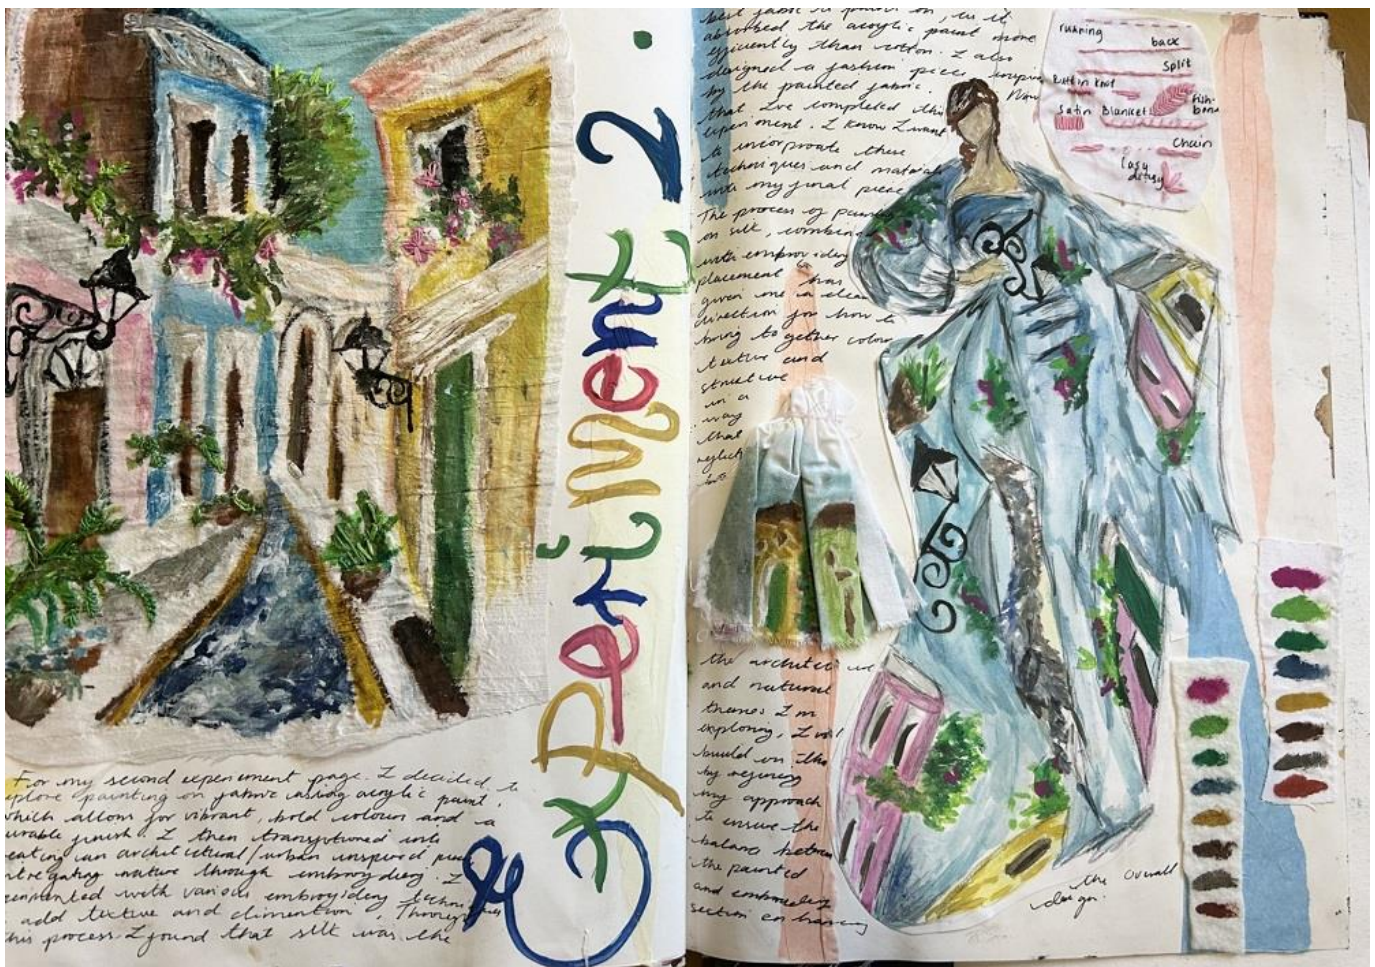 For my second experiment page. I decided to
explore painting on fabric using acrylic paint,
which allows for vibrant, bold colours and a
durable finish. I then transitioned into
creating an architectural / urban inspired
nature through embroydiery. I
with various embroydiery techniques
add texture and dimention. Through
this process I found that silk was the
Experiment 2.
best fabric to on, as it
absorbed the acrylic paint more
efficiently than cotton. I also
designed a fashion piece
by the painted fabric. Now
that I've completed this
experiment. I know I want
to incorproate these
techniques and materials
into my final piece
The process of
on silk,
with embroydiery
placement has
given me a clear
direction for how to
bring together colour
texture and
structure
in a
way
that
the
and natural
themes I'm
exploring, I will
build on this
by refining
my approach
to ensure the
balance between
the painted
and
section
running
back
split
knot
Satin Blanket fish-
bone
chain
lasy
daisy
the overall
design.